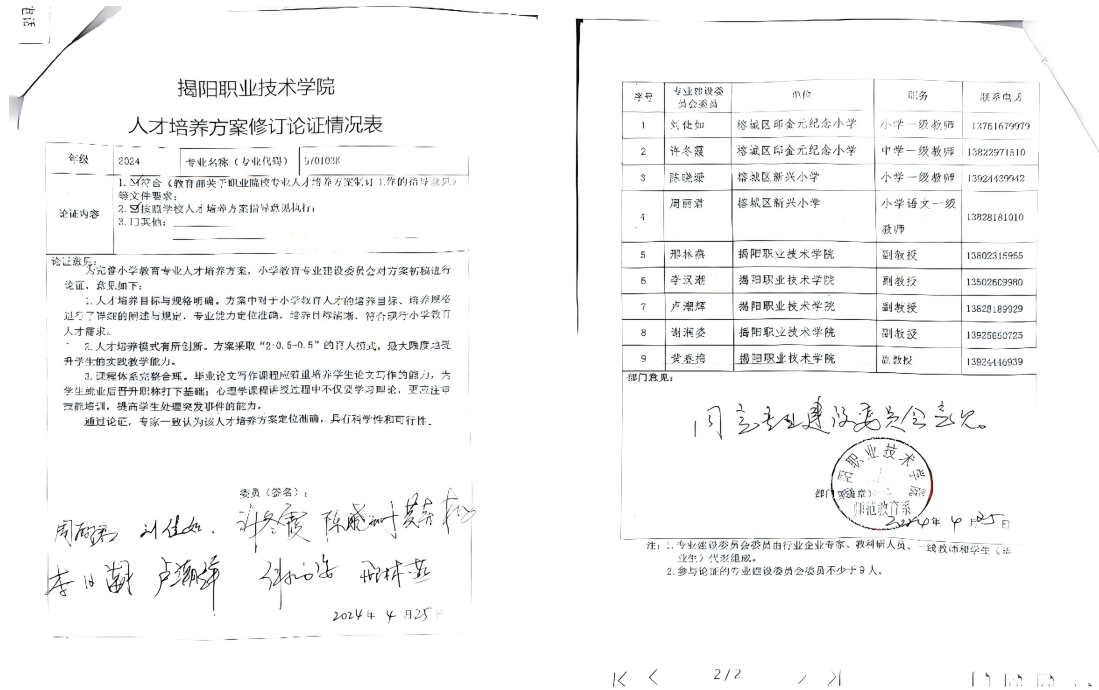 电话
揭阳职业技术学院
人才培养方案修订论证情况表
年级 2024 专业名称（专业代码） 570103K
论证内容
1.☑符合《教育部关于职业院校专业人才培养方案制订工作的指导意见》
等文件要求；
2.☑按照学校人才培养方案指导意见执行；
3.口其他：
论证意见：
为完善小学教育专业人才培养方案，小学教育专业建设委员会对方案初稿进行
论证，意见如下：
1.人才培养目标与规格明确。方案中对于小学教育人才的培养目标、培养规格
进行了详细的阐述与规定，专业能力定位准确，培养目标清晰，符合现行小学教育
人才需求。
2.人才培养模式有所创新。方案采取“2+0.5+0.5”的育人模式，最大限度地提
升学生的实践教学能力。
3.课程体系完整合理。毕业论文写作课程应着重培养学生论文写作的能力，为
学生就业后晋升职称打下基础；心理学课程讲授过程中不仅要学习理论，更应注重
技能培训，提高学生处理突发事件的能力。
通过论证，专家一致认为该人才培养方案定位准确，具有科学性和可行性。
委员（签名）：
周丽君 刘佳如 许冬霞 陈晓珊 黄春梅
李汉潮 卢潮辉 谢润姿 邢林燕
2024年4月25日
序号 专业建设委员会委员 单位 职务 联系电话
1 刘佳如 榕城区邱金元纪念小学 小学一级教师 13761679979
2 许冬霞 榕城区邱金元纪念小学 中学一级教师 13822971510
3 陈晓珊 榕城区新兴小学 小学一级教师 13924439942
4 周丽君 榕城区新兴小学 小学语文一级教师 13828181010
5 邢林燕 揭阳职业技术学院 副教授 13802315955
6 李汉潮 揭阳职业技术学院 副教授 13502609980
7 卢潮辉 揭阳职业技术学院 副教授 13828189929
8 谢润姿 揭阳职业技术学院 副教授 13925650725
9 黄春梅 揭阳职业技术学院 副教授 13924446939
部门意见：
同意专业建设委员会意见。
揭阳职业技术学院
部门（盖章）
师范教育系
2024年4月25日
注：1.专业建设委员会委员由行业企业专家、教科研人员、一线教师和学生（毕
业生）代表组成。
2.参与论证的专业建设委员会委员不少于9人。
2/2